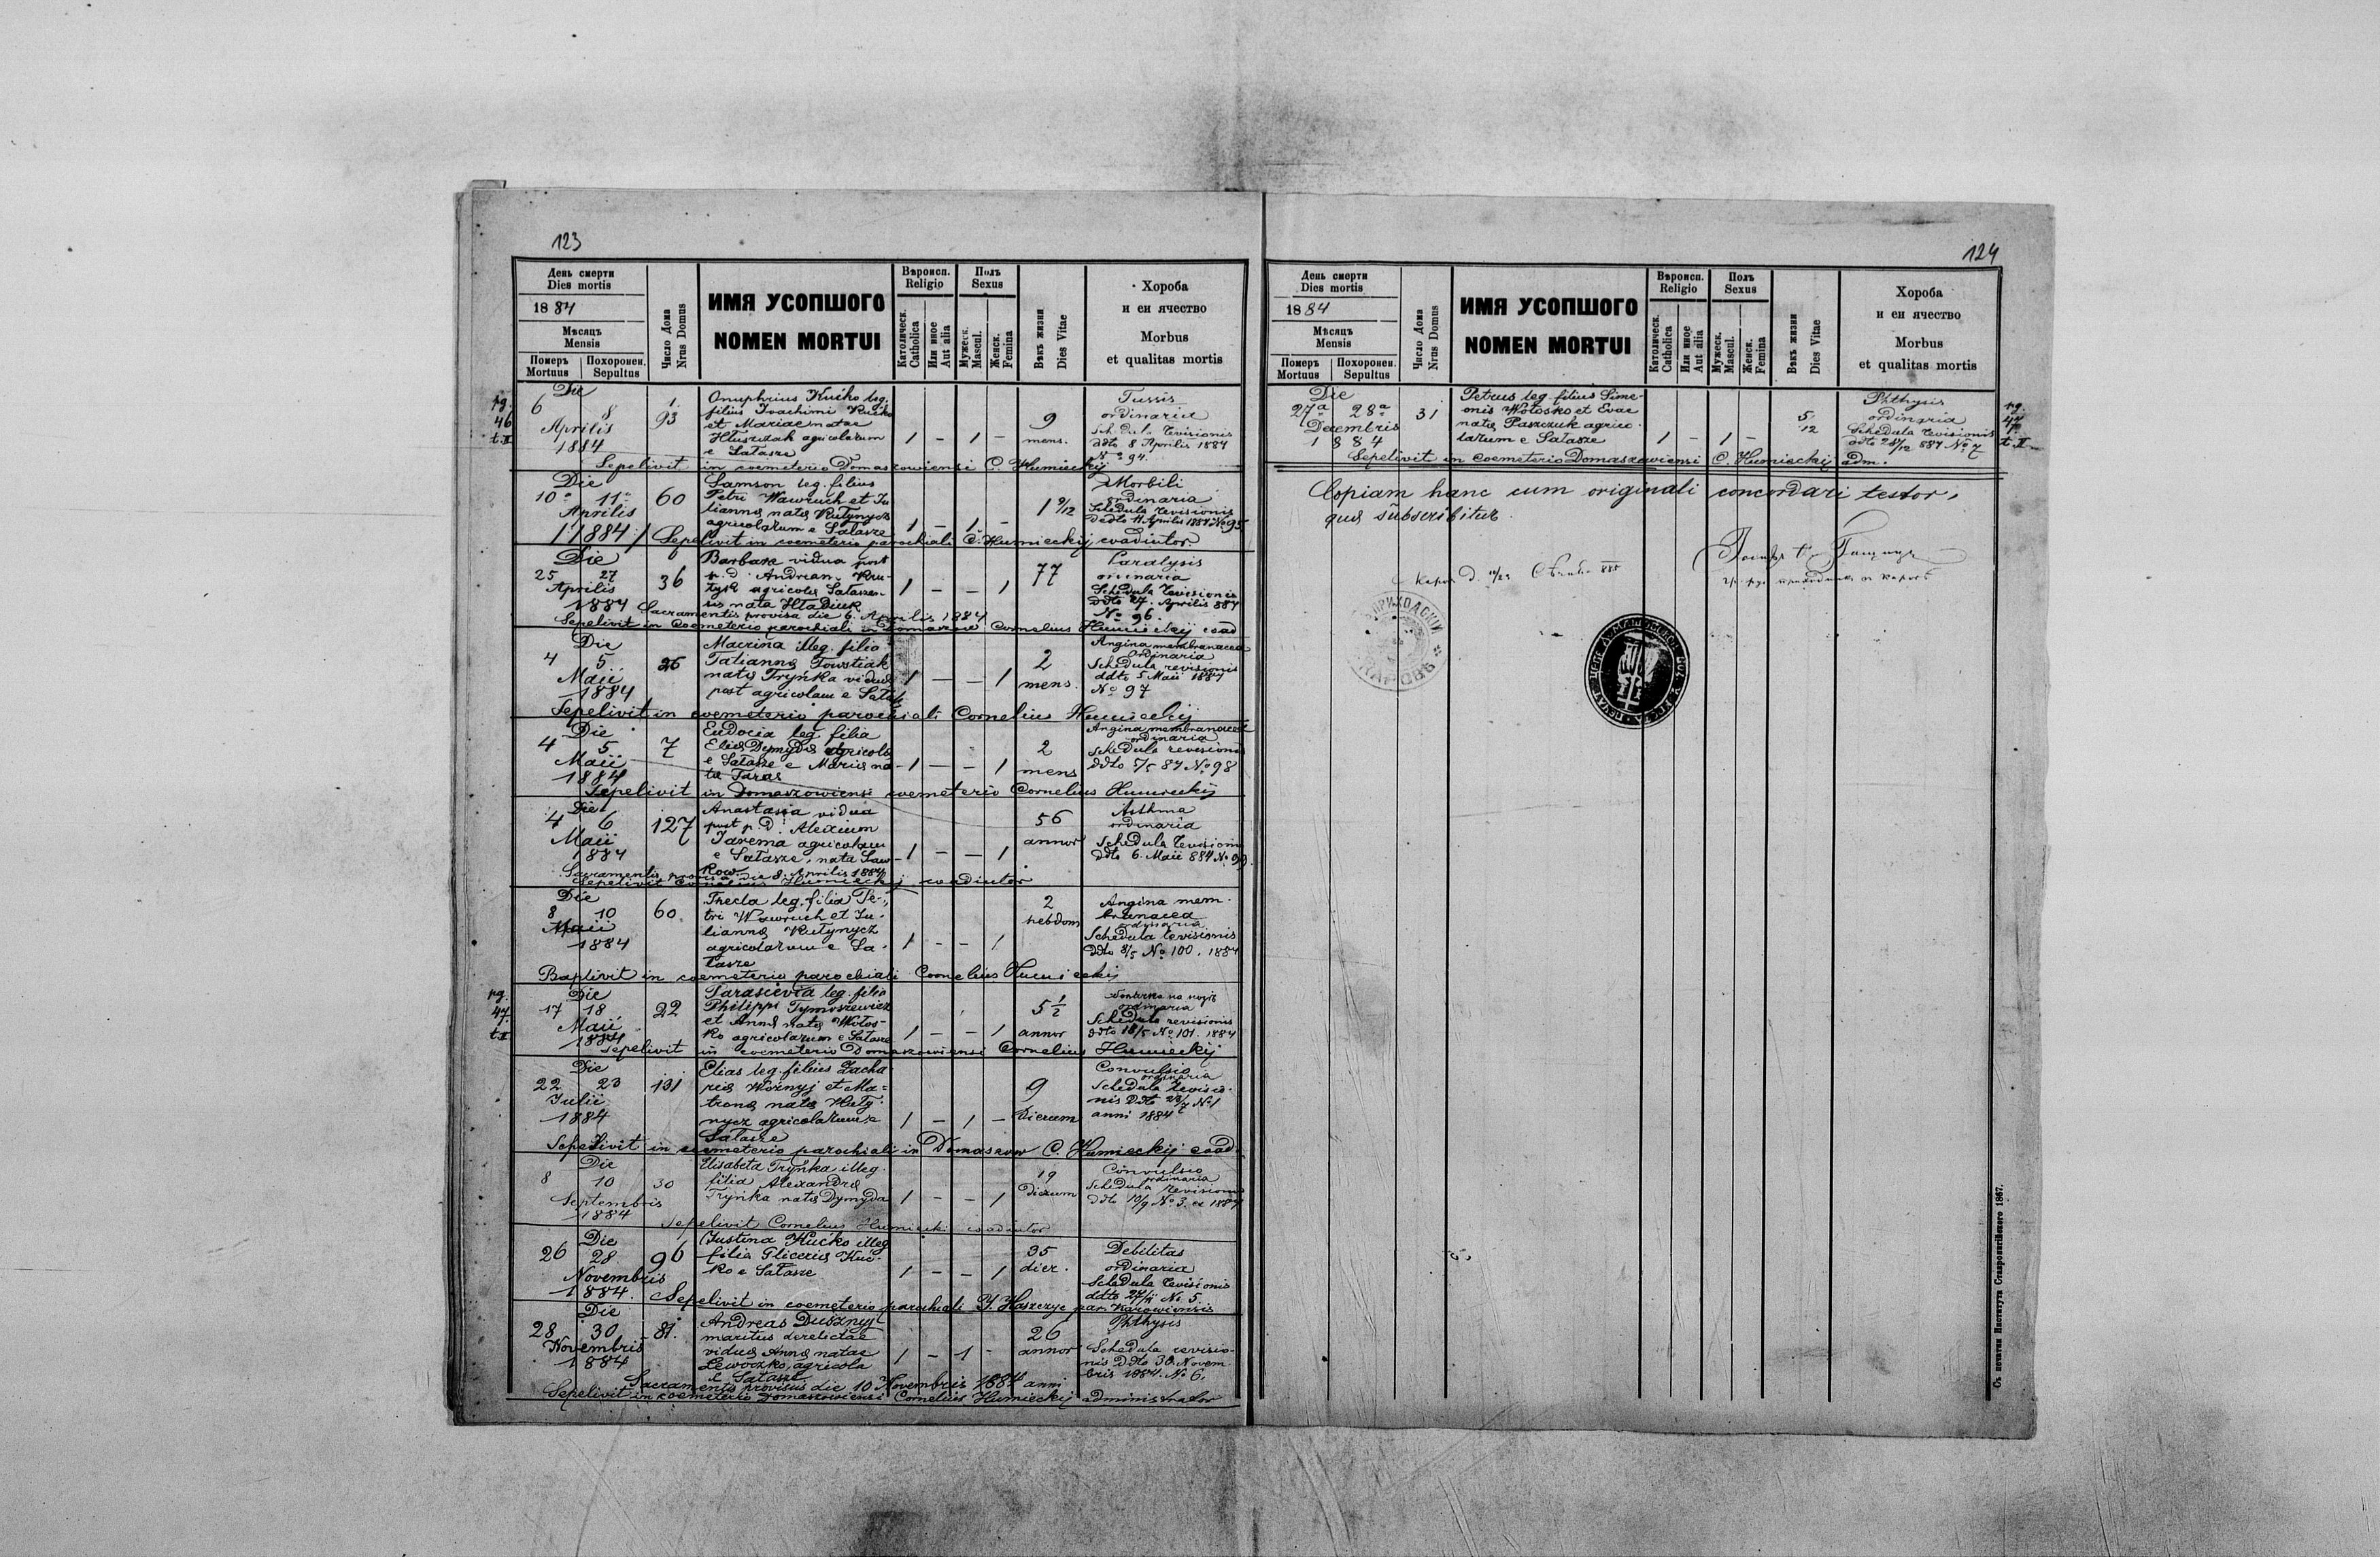 123
День смерти
Dies mortis
1884
Мѣсяцъ
Mensis
Померъ Похоронен.
Mortuus Sepultus
Число Дома
Nrus Domus
ИМЯ УСОПШОГО
NOMEN MORTUI
Вѣроисп.
Religio
Католическ.
Catholica
Или иное
Aut alia
Полъ
Sexus
Мужеск.
Mascul.
Женск.
Femina
Вѣкъ жизни
Dies Vitae
Хороба
и еи ячество
Morbus
et qualitas mortis
pg.
46
t. II
Die
6 8
Aprilis
1884
1.
93
Onuphrius Kućko leg.
filius Joachimi Kućko
et Mariae natae
Hłuszczak agricolarum
e Sałasze
1 - 1 -
9
mens.
Tussis
ordinaria
Schedula revisionis
ddto 8 Aprilis 1884
No 94.
Sepelivit in coemeterio Domaszowiensi C. Humieckij
Die
10a 11a
Aprilis
1884
60
Samson leg. filius
Petri Wawruch et Ju
lianna nata Kutynycz
agricolarum e Sałasze
1 - 1 -
1 9/12
Morbili
ordinaria
Schedula revisionis
ddto 11 Aprilis 1884 No 95
Sepelivit in coemeterio parochiali C. Humieckij coadiutor
Die
25 27
Aprilis
1884
36
Barbara vidua post
p. d. Andream
agricola Sałaszen-
sis nata Hładiuk
1 - - 1
77
Paralysis
ordinaria
Schedula revisionis
ddto 27. Aprilis 884
No 96.
Sacramentis provisa die 6. Aprilis 1884
Sepelivit in Coemeterio parochiali in Domaszow Cornelius Humieckij coad
Die
4 5
Maii
1884
25
Macrina illeg. filia
Tatianna Towstiak
nata Tryńka vidua
post agricolam e
1 - - 1
2
mens.
Angina membranacea
ordinaria
Schedula revisionis
ddto 5 Maii 1884
No 97
Sepelivit in coemeterio parochiali Cornelius Humieckij
Die
4 5
Maii
1884
7
Eudocia leg. filia
Elia Dymyda agricola
e Sałasze e Maria na
ta Taras
1 - - 1
2
mens
Angina membranacea
ordinaria
Schedula revisionis
ddto 5/5 84 No 98
Sepelivit in Domaszowiensi coemeterio Cornelius Humieckij
Die
4 6
Maii
1884
127
Anastasia vidua
post p. d. Alexium
Jarema agricolam
e Sałasze, nata Saw-
kow
1 - - 1
56
annor
Asthma
ordinaria
Schedula revisionis
ddto 6. Maii 884 No 99.
Sacramentis provisa die 8. Aprilis 1884
Sepelivit Cornelius Humieckij coadiutor
Die
8 10
Maii
1884
60.
Thecla leg. filia Pe-
tri Wawruch et Ju-
lianna Kutynycz
agricolarum e Sa-
łasze
1 - - 1
2
hebdom
Angina mem-
branacea
ordinaria
Schedula revisionis
ddto 8/5 No 100. 1884
Baptivit in coemeterio parochiali Cornelius Humieckij
pg.
47.
t. II
Die
17 18
Maii
1884
22
Parascevia leg. filia
Philippi Tymoszewicz
et Anna nata Wołos-
ko agricolarum e Sałasze
1 - - 1
5 1/2
annor
ordinaria
Schedula revisionis
ddto 18/5 No 101. 1884
Sepelivit in coemeterio Domaszowiensi Cornelius Humieckij
Die
22 23
Julii
1884
131
Elias leg. filius Zacha
ria Woźnyj et Ma-
trona nata Kuty-
nycz agricolarum e
Sałasze
1 - 1 -
9
Dierum
Convulsio
ordinaria
Schedula revisio-
nis ddto 23/7 No 1
anni 1884
Sepelivit in coemeterio parochiali in Domaszow C. Humieckij coad.
Die
8 10
Septembris
1884
30
Elisabeta Tryńka illeg.
filia Alexandra
Tryńka nata Dymyda
1 - - 1
19
Dierum
Convulsio
ordinaria
Schedula revisionis
ddto 10/9 No 3. ex 1884
Sepelivit Cornelius Humiecki coadiutor
Die
26 28
Novembris
1884.
96
Justina Kućko illeg
filia Gliceria Kuć-
ko e Sałasze
1 - - 1
35
dier.
Debilitas
ordinaria
Schedula revisionis
ddto 27/11 No 5.
Sepelivit in coemeterio parochiali J. Haszczyc par. Karowiensis
Die
28 30
Novembris
1884
81.
Andreas Dusznyj
maritus derelictae
vidua Anna natae
Lewoczko, agricola
e Sałasze
1 - 1 -
26
annor
Phthysis
Schedula revisio-
nis ddto 30. Novem-
bris 1884. No 6.
Sacramentis provisus die 10 Novembris 1884 anni
Sepelivit in coemeterio Domaszowiensi Cornelius Humieckij administrator
124
День смерти
Dies mortis
1884
Мѣсяцъ
Mensis
Померъ Похоронен.
Mortuus Sepultus
Число Дома
Nrus Domus
ИМЯ УСОПШОГО
NOMEN MORTUI
Вѣроисп.
Religio
Католическ.
Catholica
Или иное
Aut alia
Полъ
Sexus
Мужеск.
Mascul.
Женск.
Femina
Вѣкъ жизни
Dies Vitae
Хороба
и еи ячество
Morbus
et qualitas mortis
Die
27a 28a
Decembris
1884
31
Petrus leg. filius Sime-
onis Wołosko et Evae
nata Paszczuk agrico-
larum e Sałasze
1 - 1 -
5/12
Phthysis
ordinaria
Schedula revisionis
ddto 28/12 884 No 7
pg.
47.
t. II
Sepelivit in coemeterio Domaszowiensi C. Humieckij adm.
Copiam hanc cum originali concordari testor,
qua subscribitur.
Съ печатни Института Ставропигійского 1867.